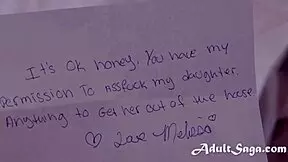 It's Ok honey. You have my
permission To Assfuck my daughter.
Anything to Get her out of the house
♡ Love Melissa ♡
AdultSaga.com